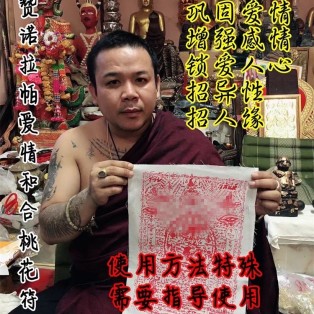 赞诺拉帕爱情和合桃花符
巩固爱情
增强感情
锁爱人心
招异性
招人缘
使用方法特殊
需要指导使用